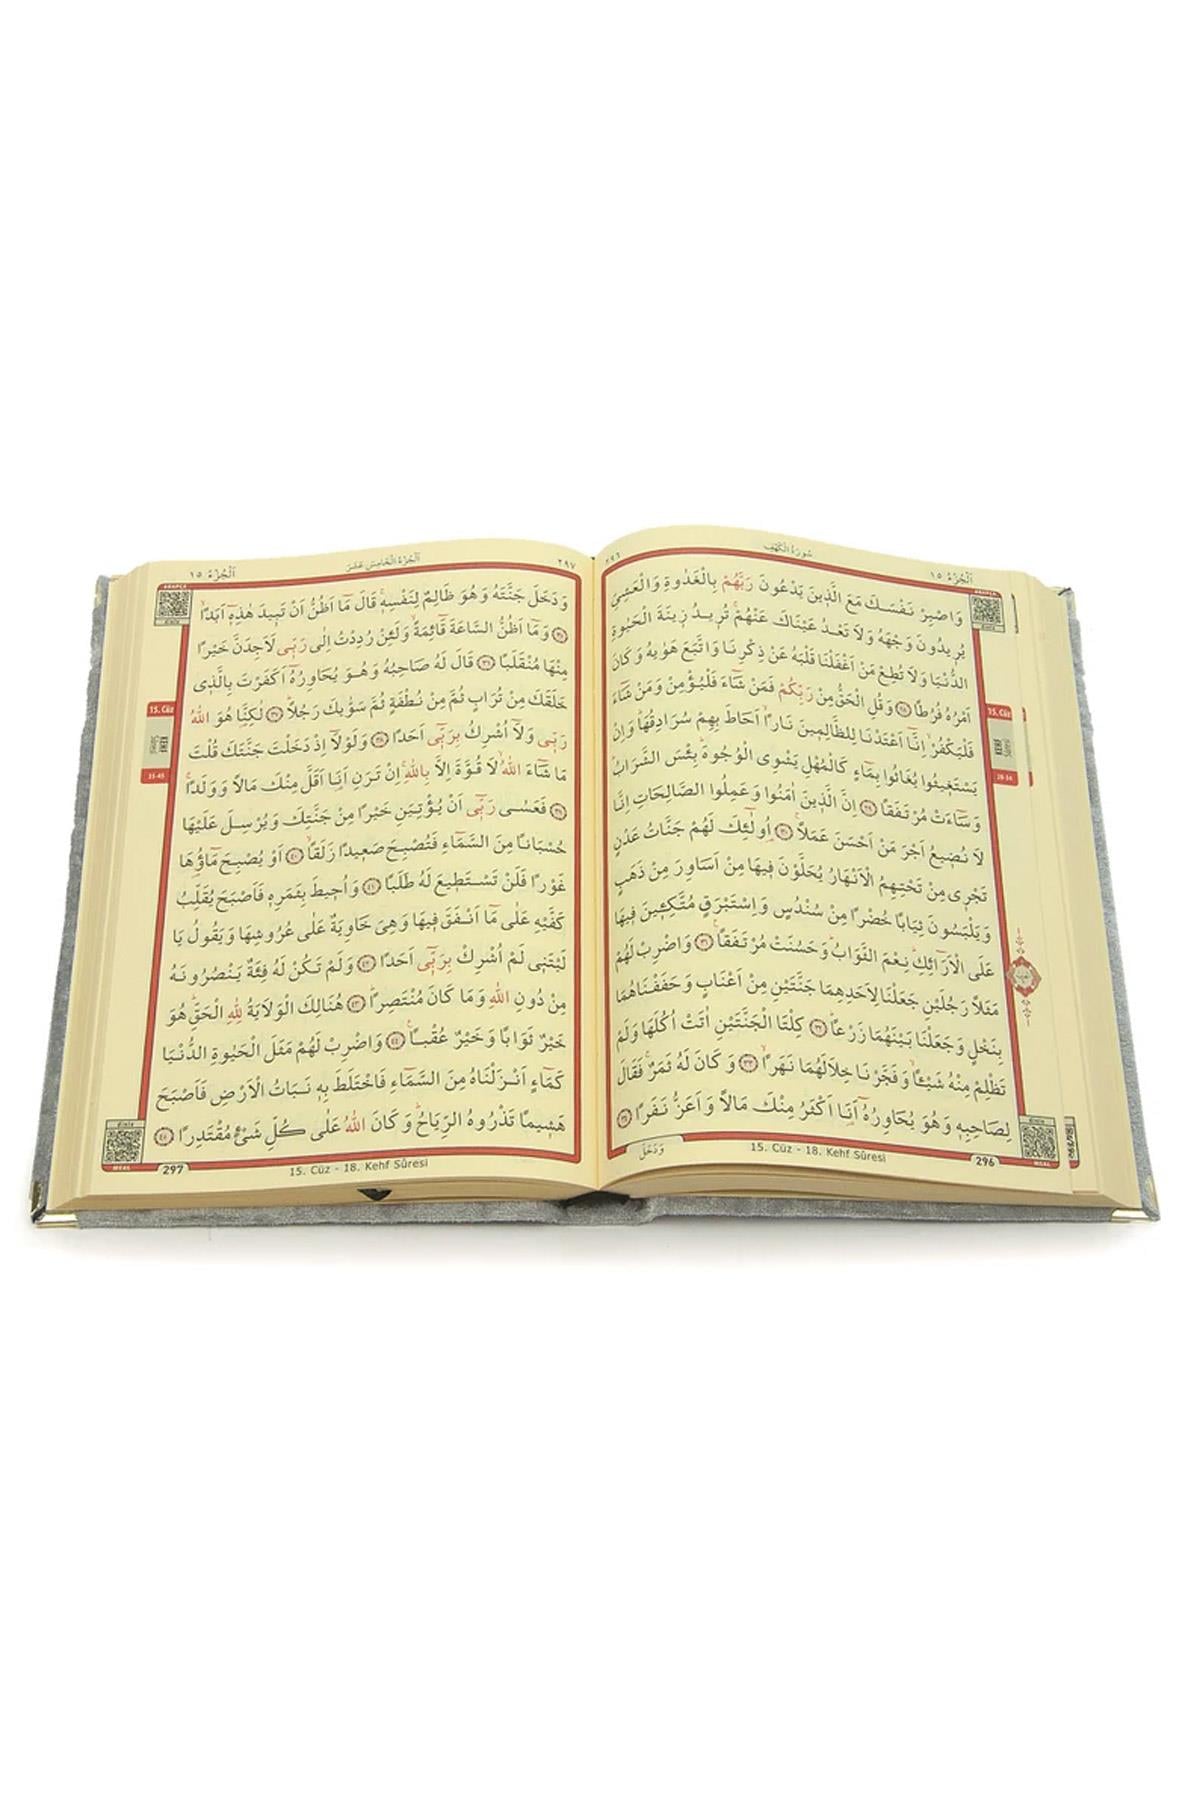 اَلْجُزْءُ ١٥
سُورَةُ الْكَهْفِ
٢٩٦
وَاصْبِرْ نَفْسَكَ مَعَ الَّذ۪ينَ يَدْعُونَ رَبَّهُمْ بِالْغَدٰوةِ وَالْعَشِيِّ
يُر۪يدُونَ وَجْهَهُ وَلَا تَعْدُ عَيْنَاكَ عَنْهُمْۚ تُر۪يدُ ز۪ينَةَ الْحَيٰوةِ
الدُّنْيَا وَلَا تُطِعْ مَنْ اَغْفَلْنَا قَلْبَهُ عَنْ ذِكْرِنَا وَاتَّبَعَ هَوٰيهُ وَكَانَ
اَمْرُهُ فُرُطًا ﴿٢٨﴾ وَقُلِ الْحَقُّ مِنْ رَبِّكُمْ فَمَنْ شَٓاءَ فَلْيُؤْمِنْ وَمَنْ شَٓاءَ
فَلْيَكْفُرْۙ اِنَّٓا اَعْتَدْنَا لِلظَّالِم۪ينَ نَارًاۙ اَحَاطَ بِهِمْ سُرَادِقُهَاۜ وَاِنْ
يَسْتَغ۪يثُوا يُغَاثُوا بِمَٓاءٍ كَالْمُهْلِ يَشْوِي الْوُجُوهَۜ بِئْسَ الشَّرَابُۜ
وَسَٓاءَتْ مُرْتَفَقًا ﴿٢٩﴾ اِنَّ الَّذ۪ينَ اٰمَنُوا وَعَمِلُوا الصَّالِحَاتِ اِنَّا
لَا نُض۪يعُ اَجْرَ مَنْ اَحْسَنَ عَمَلًاۚ ﴿٣٠﴾ اُو۬لٰٓئِكَ لَهُمْ جَنَّاتُ عَدْنٍ
تَجْر۪ي مِنْ تَحْتِهِمُ الْاَنْهَارُ يُحَلَّوْنَ ف۪يهَا مِنْ اَسَاوِرَ مِنْ ذَهَبٍ
وَيَلْبَسُونَ ثِيَابًا خُضْرًا مِنْ سُنْدُسٍ وَاِسْتَبْرَقٍ مُتَّكِـ۪ٔينَ ف۪يهَا
عَلَى الْاَرَٓائِكِۜ نِعْمَ الثَّوَابُۜ وَحَسُنَتْ مُرْتَفَقًا۟ ﴿٣١﴾ وَاضْرِبْ لَهُمْ
مَثَلًا رَجُلَيْنِ جَعَلْنَا لِاَحَدِهِمَا جَنَّتَيْنِ مِنْ اَعْنَابٍ وَحَفَفْنَاهُمَا
بِنَخْلٍ وَجَعَلْنَا بَيْنَهُمَا زَرْعًاۜ ﴿٣٢﴾ كِلْتَا الْجَنَّتَيْنِ اٰتَتْ اُكُلَهَا وَلَمْ
تَظْلِمْ مِنْهُ شَيْـًٔاۙ وَفَجَّرْنَا خِلَالَهُمَا نَهَرًاۙ ﴿٣٣﴾ وَكَانَ لَهُ ثَمَرٌۚ فَقَالَ
لِصَاحِبِه۪ وَهُوَ يُحَاوِرُهُٓ اَنَا۬ اَكْثَرُ مِنْكَ مَالًا وَاَعَزُّ نَفَرًا ﴿٣٤﴾
وَدَخَلَ
15. Cüz - 18. Kehf Sûresi
296
15. Cüz
28-34
اَلْجُزْءُ ١٥
اَلْجُزْءُ الْخَامِسَ عَشَرَ
٢٩٧
وَدَخَلَ جَنَّتَهُ وَهُوَ ظَالِمٌ لِنَفْسِه۪ۚ قَالَ مَٓا اَظُنُّ اَنْ تَب۪يدَ هٰذِه۪ٓ اَبَدًاۙ
﴿٣٥﴾ وَمَٓا اَظُنُّ السَّاعَةَ قَٓائِمَةًۙ وَلَئِنْ رُدِدْتُ اِلٰى رَبّ۪ي لَاَجِدَنَّ خَيْرًا
مِنْهَا مُنْقَلَبًا ﴿٣٦﴾ قَالَ لَهُ صَاحِبُهُ وَهُوَ يُحَاوِرُهُٓ اَكَفَرْتَ بِالَّذ۪ي
خَلَقَكَ مِنْ تُرَابٍ ثُمَّ مِنْ نُطْفَةٍ ثُمَّ سَوّٰيكَ رَجُلًاۜ ﴿٣٧﴾ لٰكِنَّا۬ هُوَ اللّٰهُ
رَبّ۪ي وَلَٓا اُشْرِكُ بِرَبّ۪ٓي اَحَدًا ﴿٣٨﴾ وَلَوْلَٓا اِذْ دَخَلْتَ جَنَّتَكَ قُلْتَ
مَا شَٓاءَ اللّٰهُۙ لَا قُوَّةَ اِلَّا بِاللّٰهِۚ اِنْ تَرَنِ اَنَا۬ اَقَلَّ مِنْكَ مَالًا وَوَلَدًاۚ
﴿٣٩﴾ فَعَسٰى رَبّ۪ٓي اَنْ يُؤْتِيَنِ خَيْرًا مِنْ جَنَّتِكَ وَيُرْسِلَ عَلَيْهَا
حُسْبَانًا مِنَ السَّمَٓاءِ فَتُصْبِحَ صَع۪يدًا زَلَقًاۙ ﴿٤٠﴾ اَوْ يُصْبِحَ مَٓاؤُ۬هَا
غَوْرًا فَلَنْ تَسْتَط۪يعَ لَهُ طَلَبًا ﴿٤١﴾ وَاُح۪يطَ بِثَمَرِه۪ فَاَصْبَحَ يُقَلِّبُ
كَفَّيْهِ عَلٰى مَٓا اَنْفَقَ ف۪يهَا وَهِيَ خَاوِيَةٌ عَلٰى عُرُوشِهَا وَيَقُولُ يَا
لَيْتَن۪ي لَمْ اُشْرِكْ بِرَبّ۪ٓي اَحَدًا ﴿٤٢﴾ وَلَمْ تَكُنْ لَهُ فِئَةٌ يَنْصُرُونَهُ
مِنْ دُونِ اللّٰهِ وَمَا كَانَ مُنْتَصِرًاۜ ﴿٤٣﴾ هُنَالِكَ الْوَلَايَةُ لِلّٰهِ الْحَقِّۜ هُوَ
خَيْرٌ ثَوَابًا وَخَيْرٌ عُقْبًا۟ ﴿٤٤﴾ وَاضْرِبْ لَهُمْ مَثَلَ الْحَيٰوةِ الدُّنْيَا
كَمَٓاءٍ اَنْزَلْنَاهُ مِنَ السَّمَٓاءِ فَاخْتَلَطَ بِه۪ نَبَاتُ الْاَرْضِ فَاَصْبَحَ
هَش۪يمًا تَذْرُوهُ الرِّيَاحُۜ وَكَانَ اللّٰهُ عَلٰى كُلِّ شَيْءٍ مُقْتَدِرًا ﴿٤٥﴾
15. Cüz - 18. Kehf Sûresi
297
15. Cüz
KEHF
Sûresi
35-45
MEAL